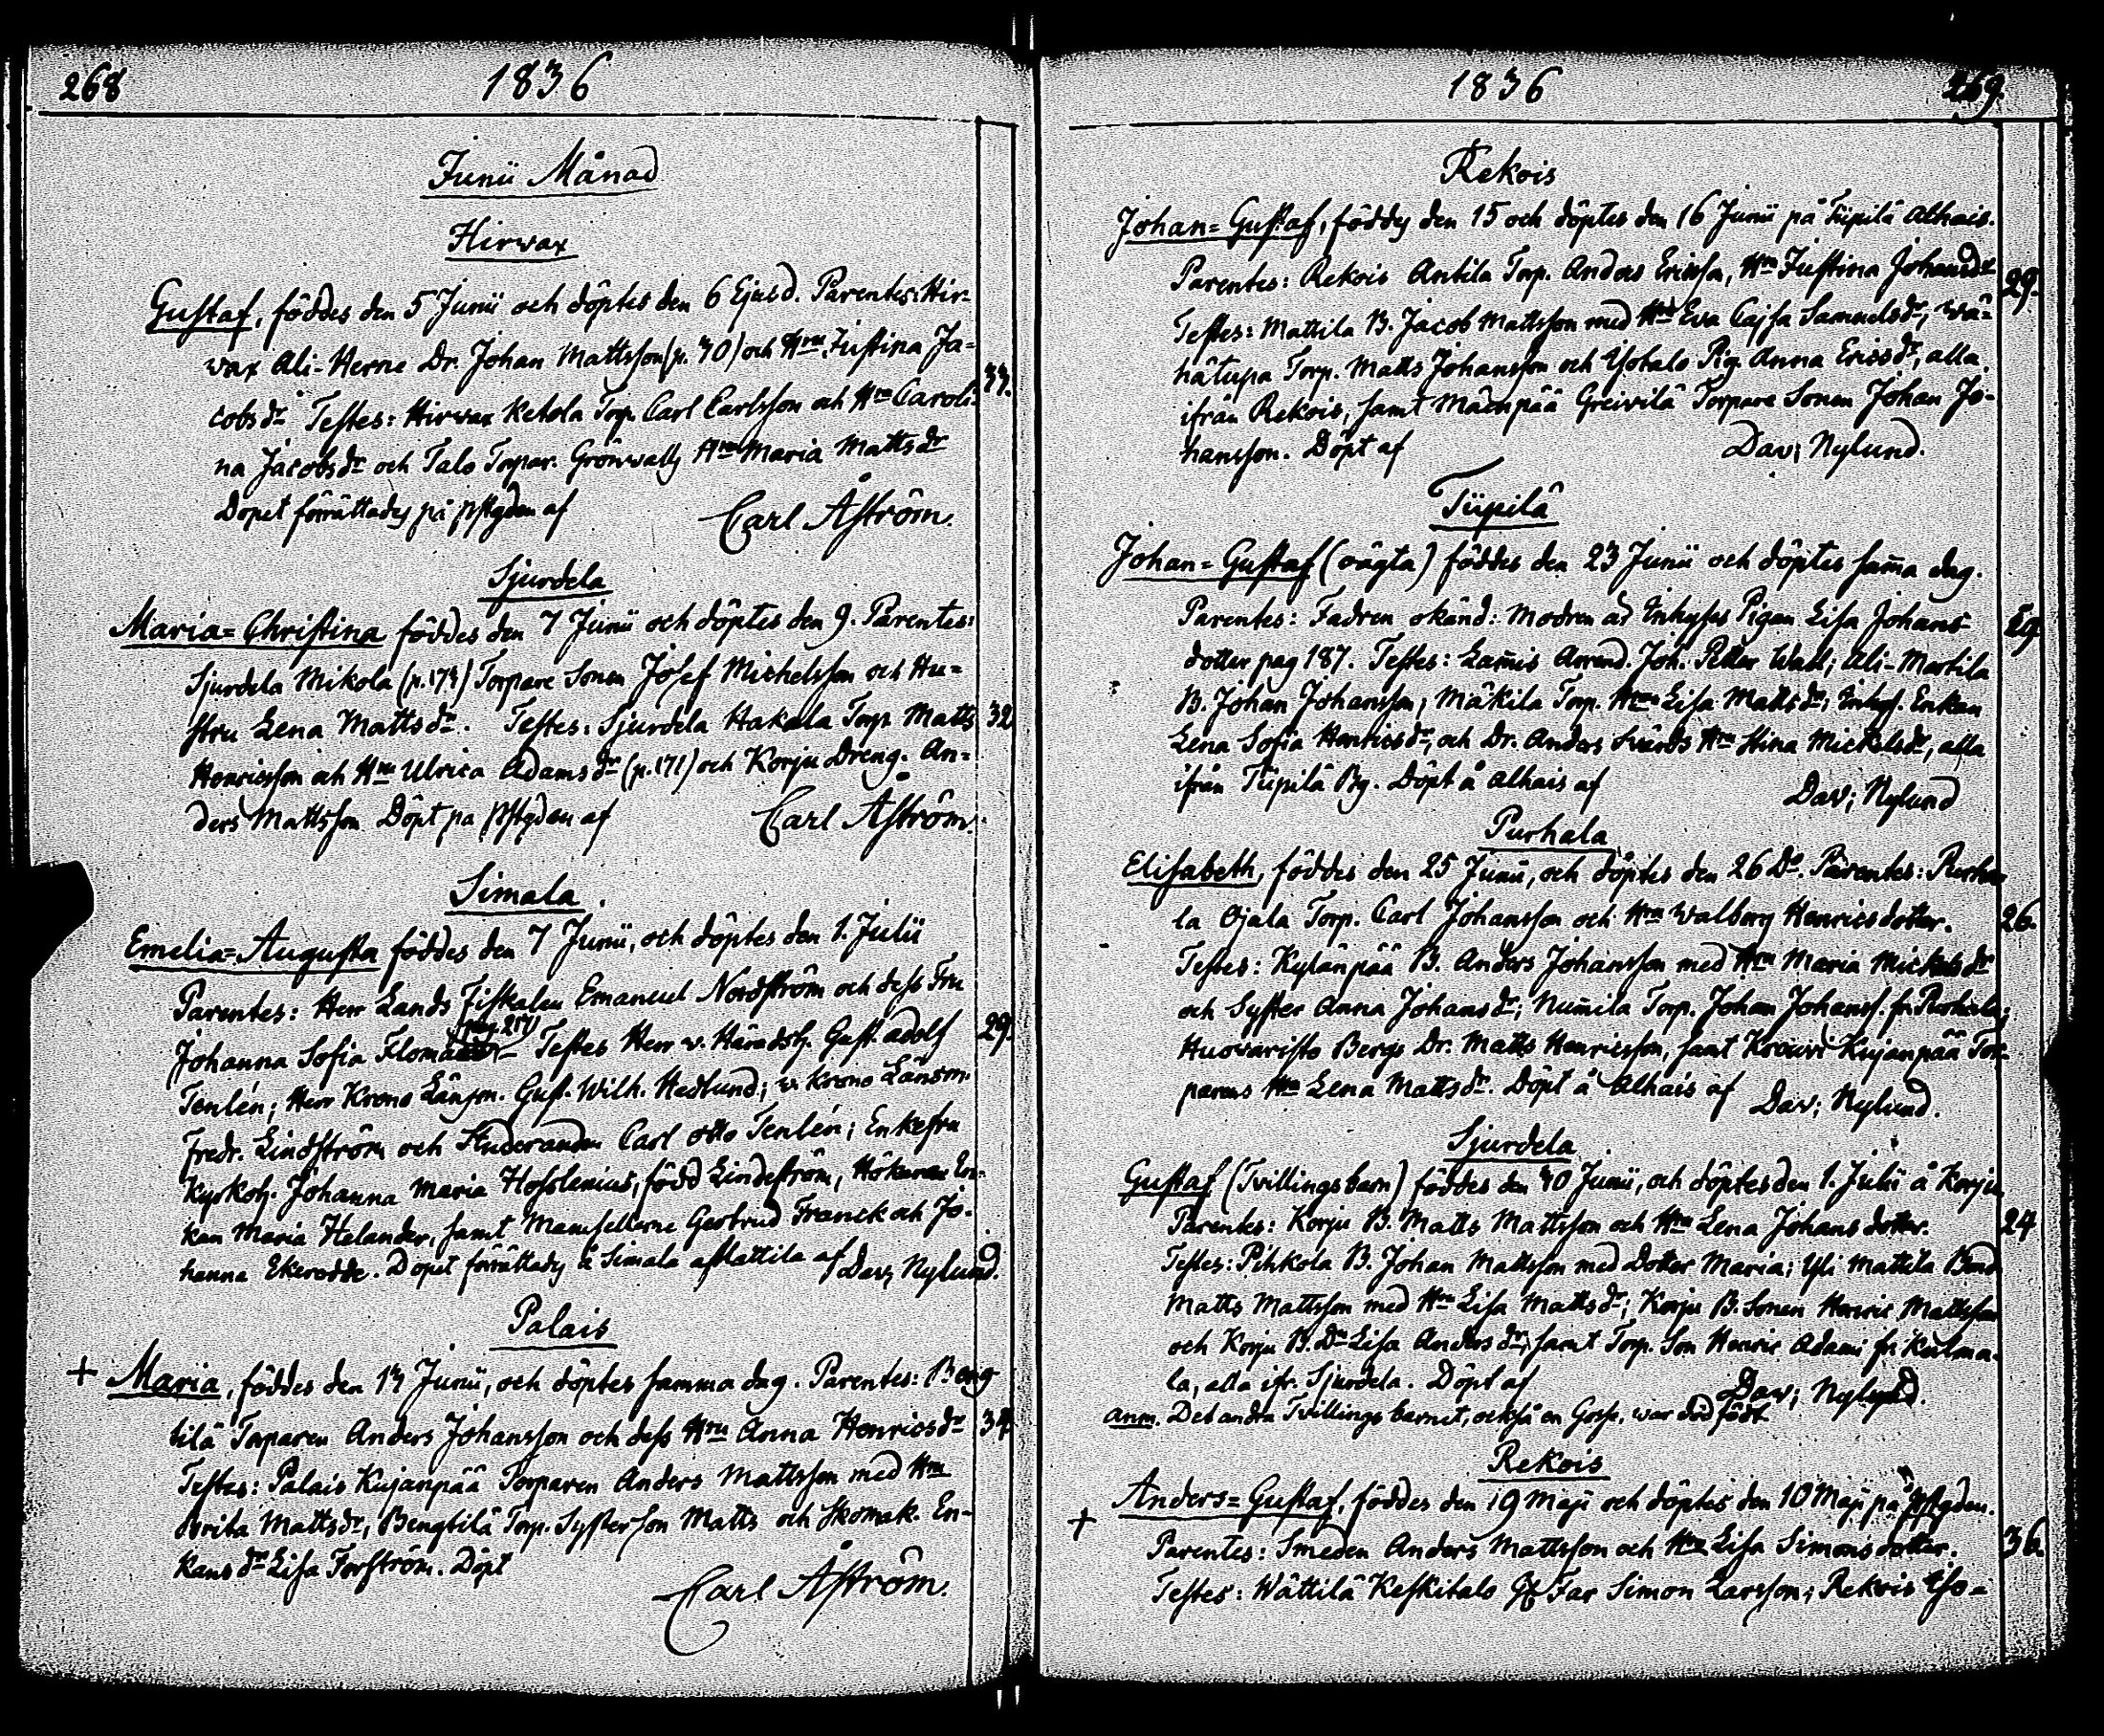 268
1836
Junii Månad
Hirvax
Gustaf, föddes den 5 Junii och döptes den 6 Ejusd. Parentes: Hir-
vax Ali-Herne Dr. Johan Mattsson (p. 70) och Hru Justina Ja-
33.
cobsdr Testes: Hirvax Ketola Torp. Carl Carlsson och Hru Caroli-
na Jacobsdr och Talo Torpar. Grönwalls Hru Maria Mattsdr
Dopet förrättades på pstgden af
Carl Åström.
Sjurdela
Maria=Christina föddes den 7 Junii och döptes den 9. Parentes:
Sjurdela Mikola (p. 173) Torpare Sonen Josef Michelsson och Hu=
stru Lena Mattsdr. Testes: Sjurdela Hakala Torp Matts
32
Henricsson och Hru Ulrica Adamsdr (p. 171) och Korju Dreng. An=
ders Mattsson Döpt på pstgden af
Carl Åström.
Simala
Emelia=Augusta föddes den 7 Junii, och döptes den 1. Julii
Parentes: Herr Lands Fiskalen Emanuel Nordström och dess Fru
(pag. 217)
Johanna Sofia Floman Testes Herr v. Häradsh. Gust. Adolf
29.
Tenlén; Herr Krono Länsm. Gust. Wilh. Hedlund; v. Krono Länsm.
Fredr. Lindström och Studeranden Carl Otto Tenlén; Enkefru
Kyrkoh. Johanna Maria Hofslenius, född Lindeström, Hökaren En-
kan Maria Helander, samt Mamsellerne Gertrud Franck och Jo-
hanna Ekerodde. Dopet förrättades å Simala af Dav; Nylund.
Palais
+ Maria, föddes den 13 Junii, och döptes samma dag. Parentes: Beng-
tilä Torparen Anders Johansson och dess Hru Anna Henricsdr
34.
Testes: Palais Kujanpää Torparen Anders Mattsson med Hru
Brita Mattsdr, Bengtilä Torp. Systerson Matts och Skomak. En-
kans dr Lisa Forström. Döpt
Carl Åström.
1836
269.
Rekois
Johan=Gustaf, föddes den 15 och döptes den 16 Junii på Tüpilä Alhais.
Parentes: Rekois Antila Torp. Anders Ericsson, Hru Justina Johansdr
29.
Testes: Mattila B. Jacob Mattsson med Hru Eva Cajsa Samuelsdr; Wä-
hätupa Torp. Matts Johansson och Ylohalo Pig. Anna Ericsdr, alla
ifrån Rekois, samt Mäenpää Greivilä Torpare Sonen Johan Jo-
hansson. Döpt af
Dav; Nylund.
Tüpilä
Johan=Gustaf (oägta) föddes den 23 Junii och döptes samma dag.
Parentes: Fadren okänd: Modren är Inhyses Pigan Lisa Johans-
29
dotter pag 187. Testes: Lammis Arrend. Joh. Petter Wall; Ali-Martila
B. Johan Johansson; Mäkila Torp. Hru Lisa Mattsdr; Inhys. Enkan
Lena Sofia Henricsdr, och Dr. Anders Svärds Hru Stina Mickelsdr, alla
ifrån Tüpilä By. Döpt å Alhais af
Dav; Nylund
Purhala
Elisabeth, föddes den 25 Junii, och döptes den 26 Do. Parentes: Purha-
la Ojala Torp. Carl Johansson och Hru Walborg Henricsdotter.
26.
Testes: Kylänpää B. Anders Johansson med Hru Maria Mickelsdr
och Syster Anna Johansdr; Numila Torp. Johan Johanss. fr. Purhala;
Huovaristo Bergs Dr. Matts Henricsson, samt Krouvi Kujanpää Tor-
parens Hru Lena Mattsdr. Döpt å Alhais af Dav; Nylund.
Sjurdela
Gustaf (Tvillingsbarn) föddes den 30 Junii, och döptes den 1. Julii å Korju.
Parentes: Korju B. Matts Mattsson och Hru Lena Johansdotter.
24
Testes: Pihkola B. Johan Mattsson med Dotter Maria; Yli Mattila Bond
Matts Mattsson med Hru Lisa Mattsdr; Korju B. Sonen Henric Mattsson
och Korju B. Dr Lisa Andersdr, samt Torp. Son Henric Adami fr. Kulma-
la, alla ifr. Sjurdela. Döpt af
Dav; Nylund.
Anm. Det andra Tvillings barnet, också en Gosse, war död född
Rekois
+ Anders=Gustaf, föddes den 19 Maji och döptes den 10 Maji på pstgden.
Parentes: Smeden Anders Mattsson och Hru Lisa Simonsdotter.
36.
Testes: Wättilä Keskitalo Far Simon Larsson; Rekois